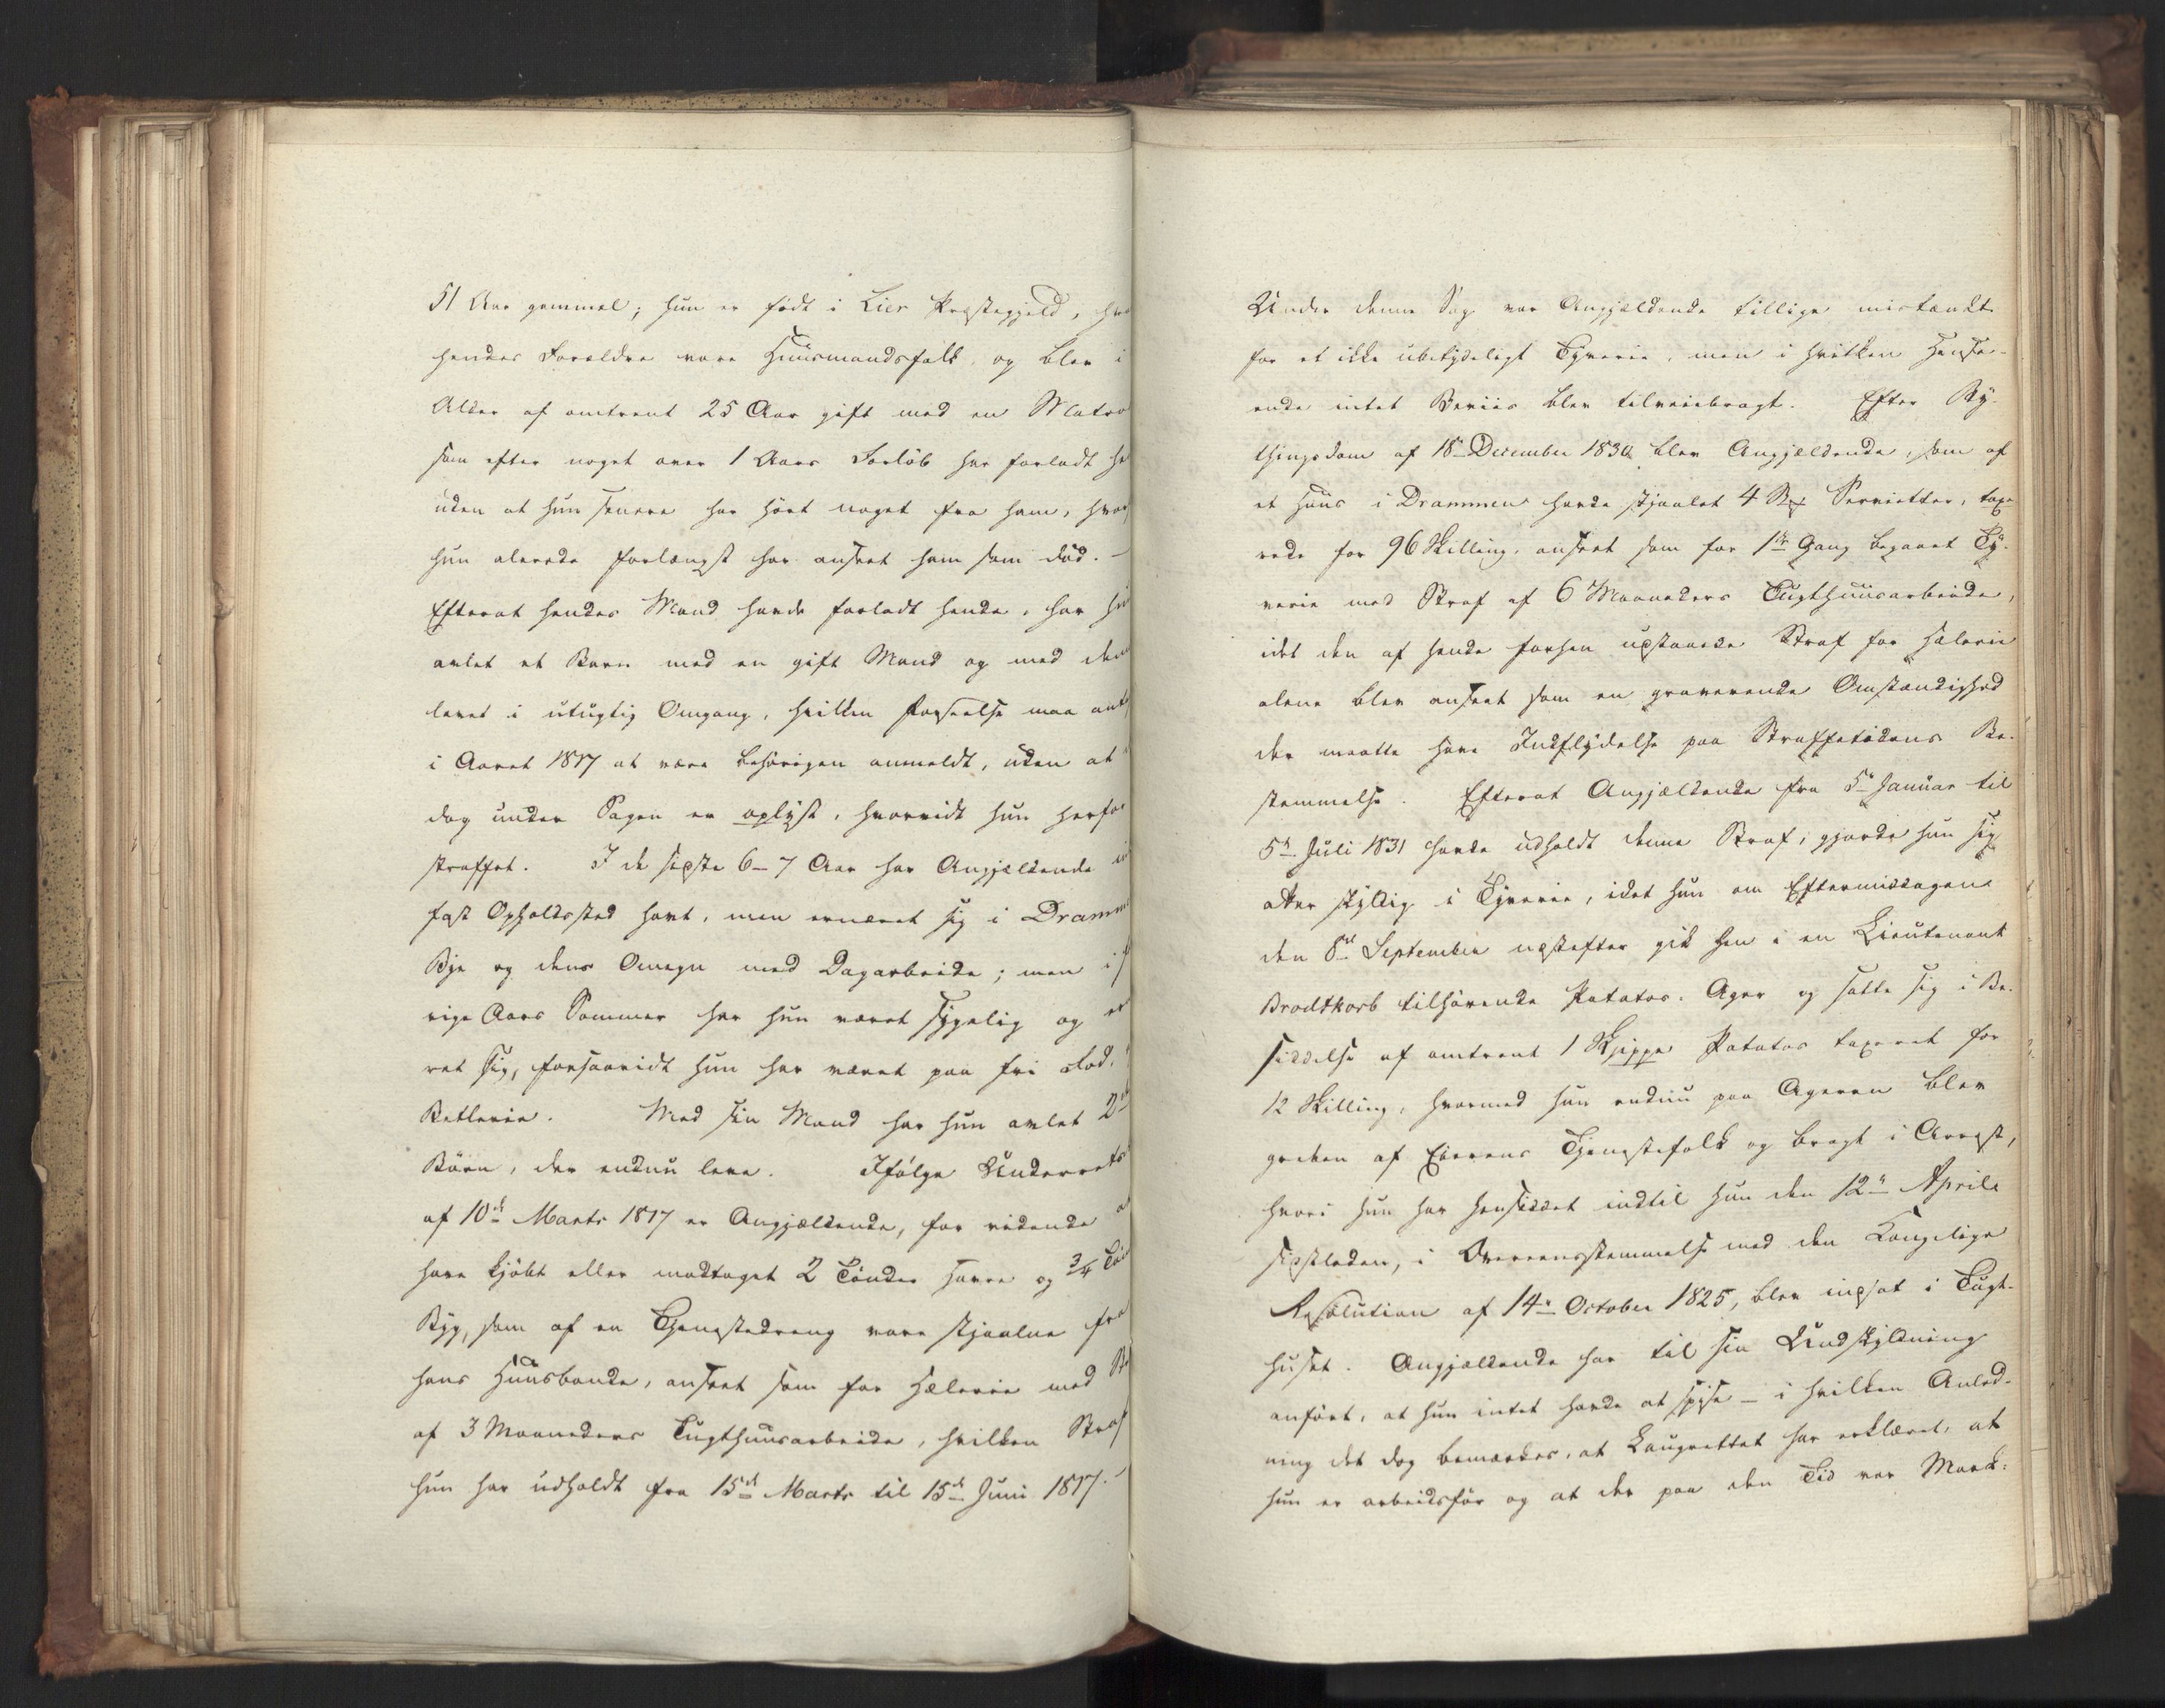 51 Aar gammel; hun er født i Lier Præstegjeld, hvor
hendes Forældre vare Huusmandsfolk, og blev i
Alder af omtrent 25 Aar gift med en Matro
som efter noget over 1 Aars Forløb har forladt he
uden at hun senere har hørt noget fra ham, hvor
hun allerede forlængst har anseet ham som død. –
Efterat hendes Mand havde forladt hende, har hun
avlet et Barn med en gift Mand og med denne
levet i utugtig Omgang, hvilken Forseelse maa ant
i Aaret 1817 at være behørigen anmeldt, uden at
dog under Sagen er oplyst, hvorvidt hun herfor
straffet. I de sidste 6–7 Aar har Angjældende i
fast Opholdssted havt, men ernæret sig i Dramme
Bye og dens Omegn med Dagarbeide; men i f
rige Aars Sommer har hun været sygelig og er
ret sig, forsaavidt hun har været paa fri Fod,
Betlerie. Med sin Mand har hun avlet 2de
Børn, der endnu leve. Ifølge Underrets
af 10de Marts 1817 er Angjældende, for vidende a
have kjøbt eller modtaget 2 Tønder Havre og 3/4 Tøn
Byg, som af en Tjenestedreng vare stjaalne fra
hans Huusbonde, anseet som for Hælerie med St
af 3 Maaneders Tugthuusarbeide, hvilken Straf
hun har udholdt fra 15de Marts til 15de Juni 1817. –
Under denne Sag var Angjældende tillige mistænkt
for et ikke ubetydeligt Tyverie, men i hvilken Hense-
ende intet Beviis blev tilveiebragt. Efter By-
thingsdom af 18de December 1830 blev Angjældende, som af
et Huus i Drammen havde stjaalet 4 Servietter, taxe-
rede for 96 Skilling, anseet som for 1ste Gang begaaet Ty-
verie med Straf af 6 Maaneders Tugthuusarbeide,
idet den af hende forhen udstaaede Straf for Hælerie
alene blev anseet som en graverende Omstændighed
der maatte have Indflydelse paa Straffetidens Be-
stemmelse. Efterat Angjældende fra 5te Januar til
5te Juli 1831 havde udholdt denne Straf, gjorde hun sig
atter skyldig i Tyverie, idet hun om Eftermiddagen
den 8de September næstefter gik hen i en Lieutenant
Brodtkorb tilhørende Potatos-Ager og satte sig i Be-
siddelse af omtrent 1 Skjeppe Potatos taxeret for
12 Skilling, hvormed hun endnu paa Ageren blev
greben af Eierens Tjenestefolk og bragt i Arrest,
hvori hun har hensiddet indtil hun den 12te April
sidstleden, i Overeensstemmelse med den Kongelige
Resolution af 14de October 1825, blev indsat i Tugt-
huset. Angjældende har til sin Undskyldning
anført, at hun intet havde at spise – i hvilken Anled-
ning det dog bemærkes, at Laugrettet har erklæret, at
hun er arbeidsfør og at der paa den Tid var Mark-